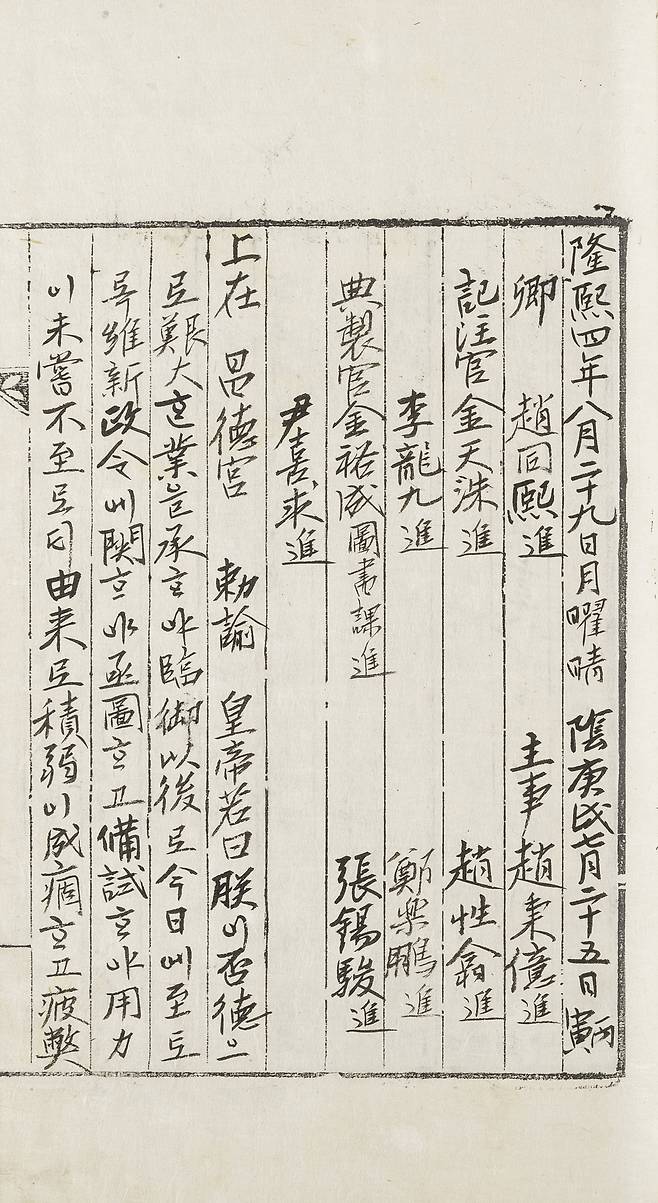 隆熙四年八月二十九日月曜晴 陰庚戌七月二十五日丙寅
卿 趙同熙進 主事 趙秉億進
記注官金天洙進 趙性翕進
李龍九進 鄭樂鵬進
典製官金裕成圖書課進 張錫駿進
尹喜求進
上在 昌德宮 勅諭 皇帝若曰朕이否德으
로艱大ᄒᆞᆫ業을承ᄒᆞ야臨御以後로今日에至토
록維新政令에関ᄒᆞ야亟圖ᄒᆞ고備試ᄒᆞ야用力
이未嘗不至로ᄃᆡ由来로積弱이成痼ᄒᆞ고疲弊